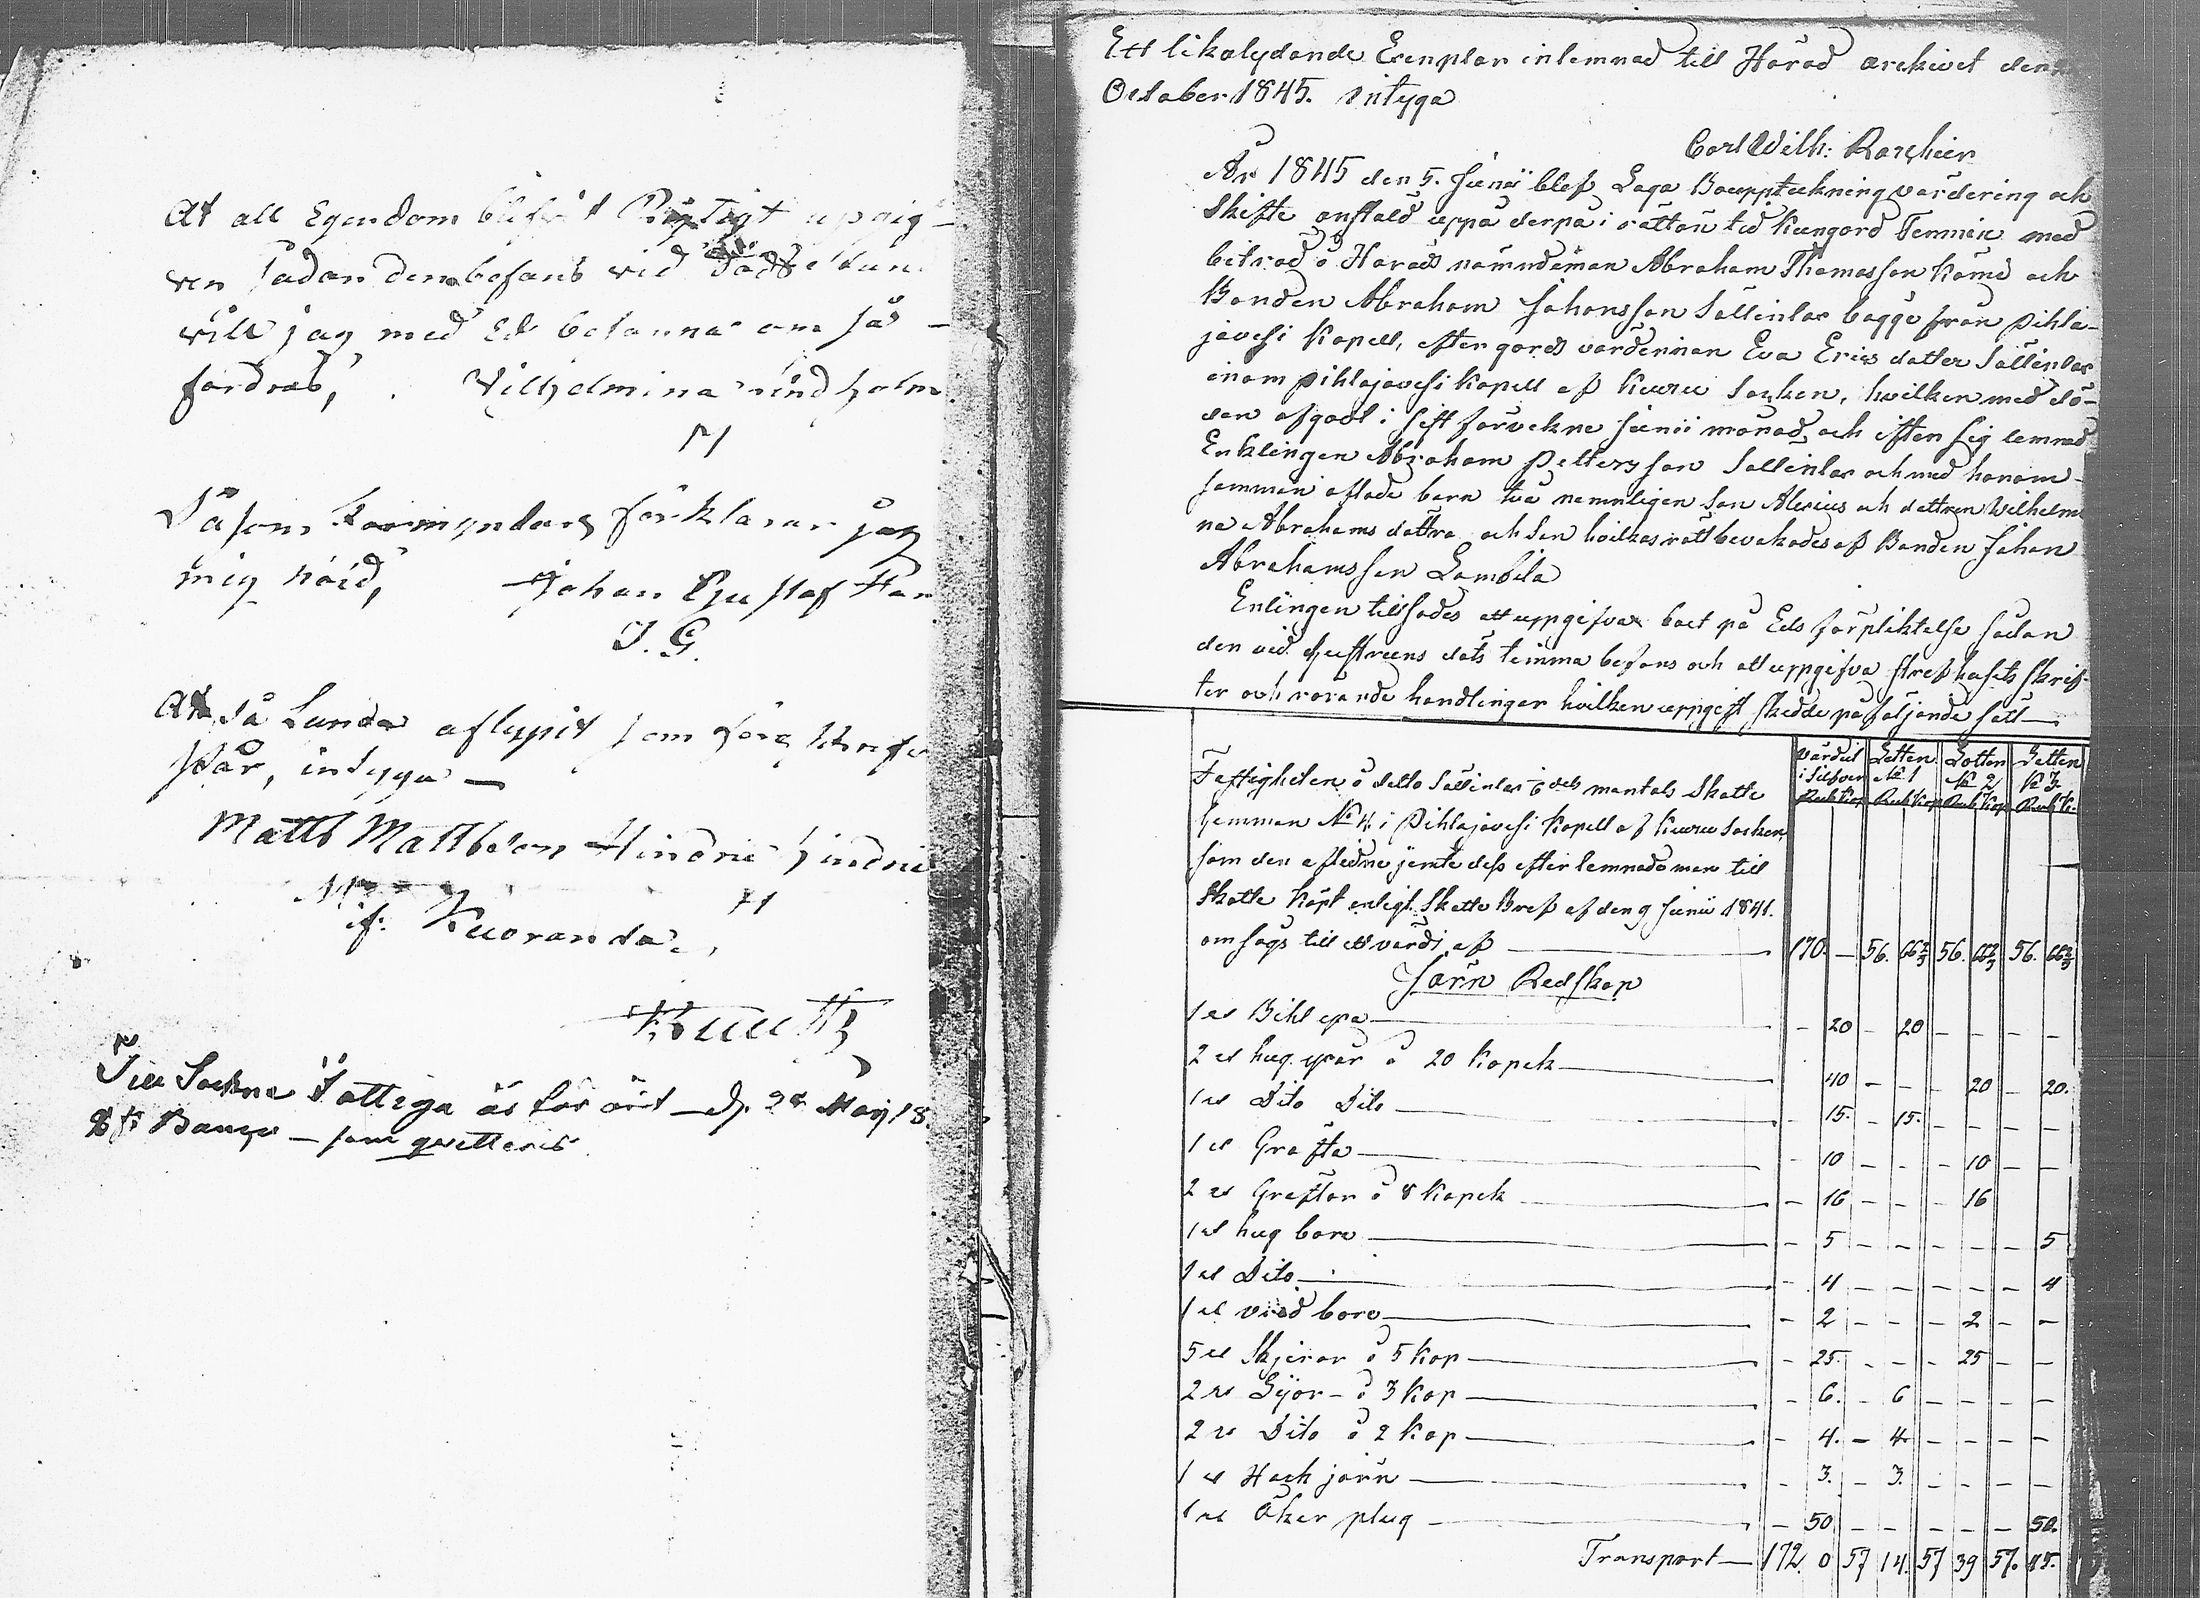 At all Egendom blifvit Rigtigt uppgif-
ven sådan den befans vid
vill jag med Ed betanna om så
fordras, Vilhjelmina Lindholm
Såsom Formyndare förklarar jag
mig nöid, Johan Gustaf
J. G.
At så Lunda aflupit som
står, intyga —
Matts Mattsson Hindric Hindric
if: Kuoranda,
Till Sockne Fattiga är d. 28 Maij 18
Banco — som qvitteras
Ett likalydande Exemplar inlemnad till Härad archivet den
October 1845. intyga
Carl Wilh:
År 1845 den 5. Junii blef Laga Bouppteckning värdering och
Skifte anstald uppå derpå i rättan tid kungord Termin med
biträd ä Härads nämndeman Abraham Thomasson Kömi och
Bonden Abraham Johansson Sällinlax bägge från Pihla-
javesi Kapell, efter gårds värdinnan Eva Erics datter Sällinlax
inom Pihlajavesi Kapell af Kuru Socken, hvilken med dö-
den afgådt i sist förvekne Junii månad, och efter sig lemnad
Enklingen Abraham Pettersson Sällinlax och med honom
samman aflade barn två nemnligen Son Alexius och dottren Wilhelmi
na Abrahams dottra och Son hvilkas rätt bevakades af Bonden Johan
Abrahamsson Lambila
Enlingen tillsades att uppgifva boet på Eds förpliktelse sådan
den vid Hustruens döds timma befans och att uppgifva sterfhusets skrif-
ter och rörande handlingar hvilken uppgift skedde på följande sätt
Värdiet Lotten Lotten Lotten
i Silfver № 1 № 2 № 3
Rub Kop Rub Kop Rub Kop Rub K.
Fastigheten ä detto Sällinlax 6 dels mantals Skatte
hemman № 4 i Pihlajavesi Kapell af Kuru Socken,
som den aflidne jemte dess efterlemnade man till
Skatte köpt enligt Skatte Bref af den 9 Junii 1841.
omsågs till ett värdi af — 170. — 56. 66 2/3 56. 66 2/3 56. 66 2/3
Järn Redskap
1 st Bihl yxa — — 20 — 20 — — — —
2 st hug yxor å 20 Kopek — 40 — — — 20 — 20.
1 st Dito Dito — — 15. — 15. — — — —
1 st Gräfta — — 10 — — — 10 — —
2 st Gräftor å 8 Kopek — — 16 — — — 16
1 st hug bore — — 5 — — — — — 5
1 st Dito — — 4 — — — — — 4
1 st vrid bore — — 2 — — — 2 — —
5 st Skjeror å 5 Kop — — 25. — — — 25 — —
2 st Lijor å 3 Kop — — 6. — 6 — — — —
2 st Dito å 2 Kop — — 4. — 4. — — — —
1 st Hack jarn — — 3. — 3. — — — —
1 st Åker plug — — 50 — — — — — 50.
Transport — 172. 0 57 14. 57 39 57. 45.